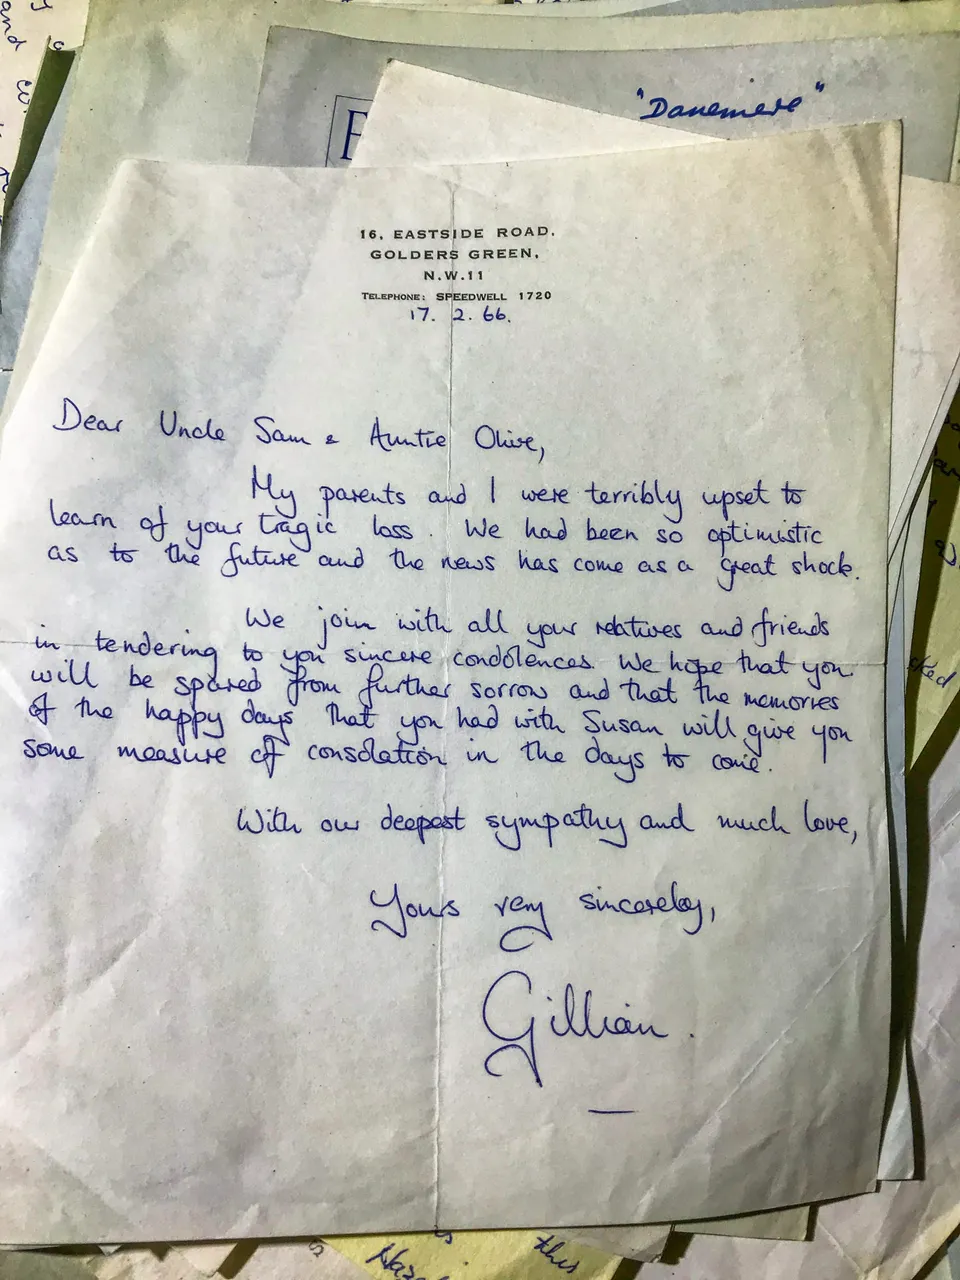 "Danemere"
16, EASTSIDE ROAD,
GOLDERS GREEN,
N.W.11
TELEPHONE: SPEEDWELL 1720
17. 2. 66.
Dear Uncle Sam & Auntie Olive,
My parents and I were terribly upset to
learn of your tragic loss. We had been so optimistic
as to the future and the news has come as a great shock.
We join with all your relatives and friends
in tendering to you sincere condolences. We hope that you
will be spared from further sorrow and that the memories
of the happy days that you had with Susan will give you
some measure of consolation in the days to come.
With our deepest sympathy and much love,
Yours very sincereley,
Gillian.
this